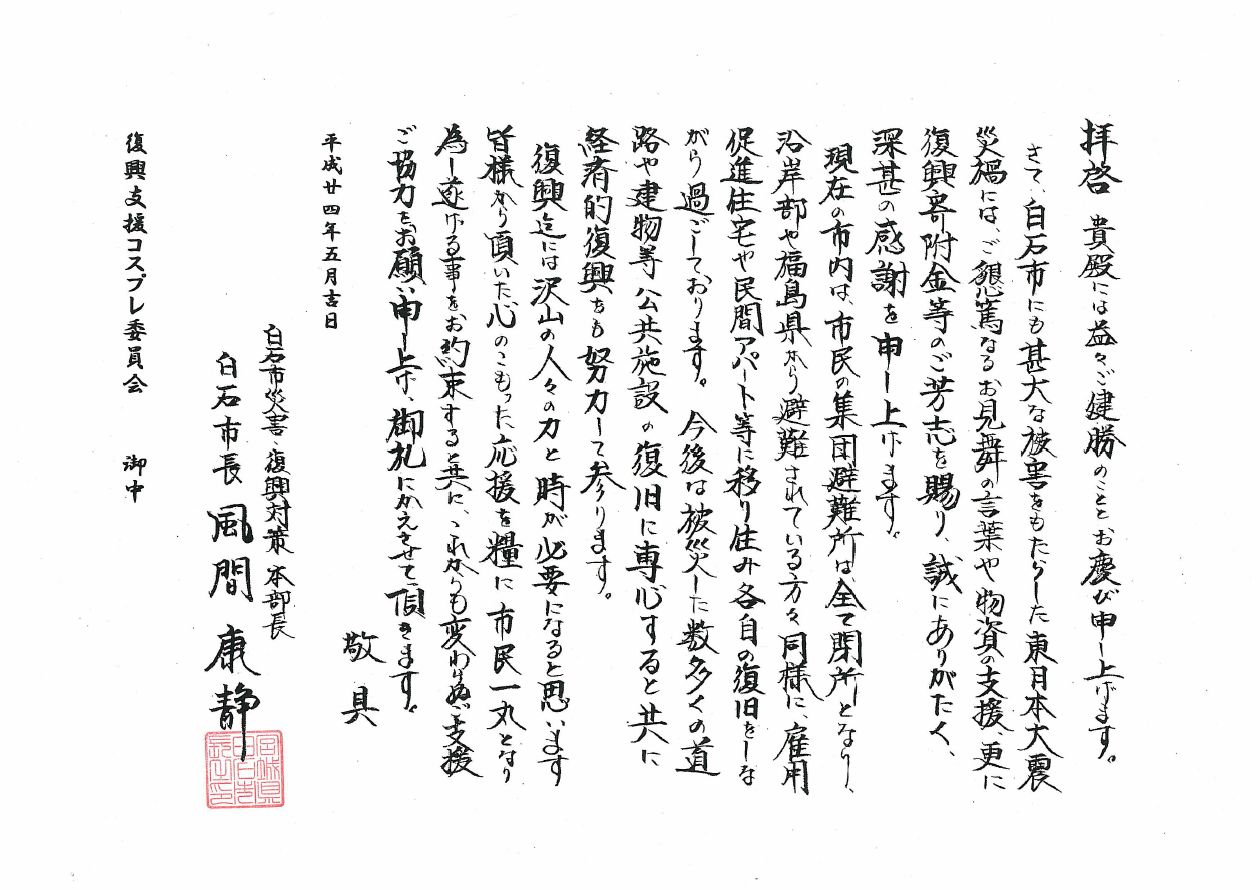 拝啓 貴殿には益々ご健勝のこととお慶び申し上げます。
さて、白石市にも甚大な被害をもたらした東日本大震
災禍には、ご懇篤なるお見舞の言葉や物資の支援、更に
復興寄附金等のご芳志を賜り、誠にありがたく、
深甚の感謝を申し上げます。
現在の市内は、市民の集団避難所は全て閉所となり、
沿岸部や福島県から避難されている方々同様に、雇用
促進住宅や民間アパート等に移り住み各自の復旧をしな
がら過ごしております。今後は被災した数多くの道
路や建物等公共施設の復旧に専心すると共に
経済的復興をも努力して参ります。
復興迄には沢山の人々の力と時が必要になると思います
皆様から頂いた心のこもった応援を糧に市民一丸となり
為し遂げる事をお約束すると共に、これからも変わらぬご支援
ご協力をお願い申し上げ、御礼にかえさせて頂きます。
敬具
平成廿四年五月吉日
白石市災害・復興対策本部長
白石市長 風間康静
復興支援コスプレ委員会 御中